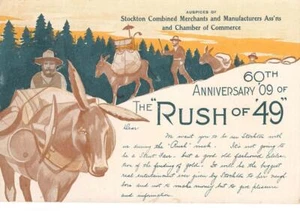 AUSPICES OF
Stockton Combined Merchants and Manufacturers Ass'ns
and Chamber of Commerce
60TH
ANNIVERSARY '09 OF
THE "RUSH OF '49"
Dear
We want you to be in Stockton with
us during the "Rush" week. It's not going to
be a Street Fair, but a good old fashioned celebra-
tion of the finding of gold. It will be the biggest
real entertainment ever given by Stockton to her neigh
bors and not to make money but to give pleasure
and information